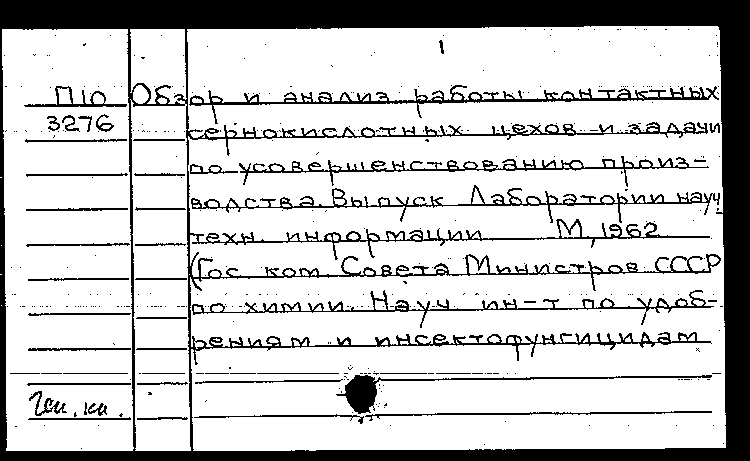 1
П10 Обзор и анализ работы контактных
3276 сернокислотных цехов и задачи
по усовершенствованию произ-
водства. Выпуск Лаборатории науч.
техн. информации М, 1962
(Гос. ком. Совета Министров СССР
по химии. Науч. ин-т по удоб-
рениям и инсектофунгицидам